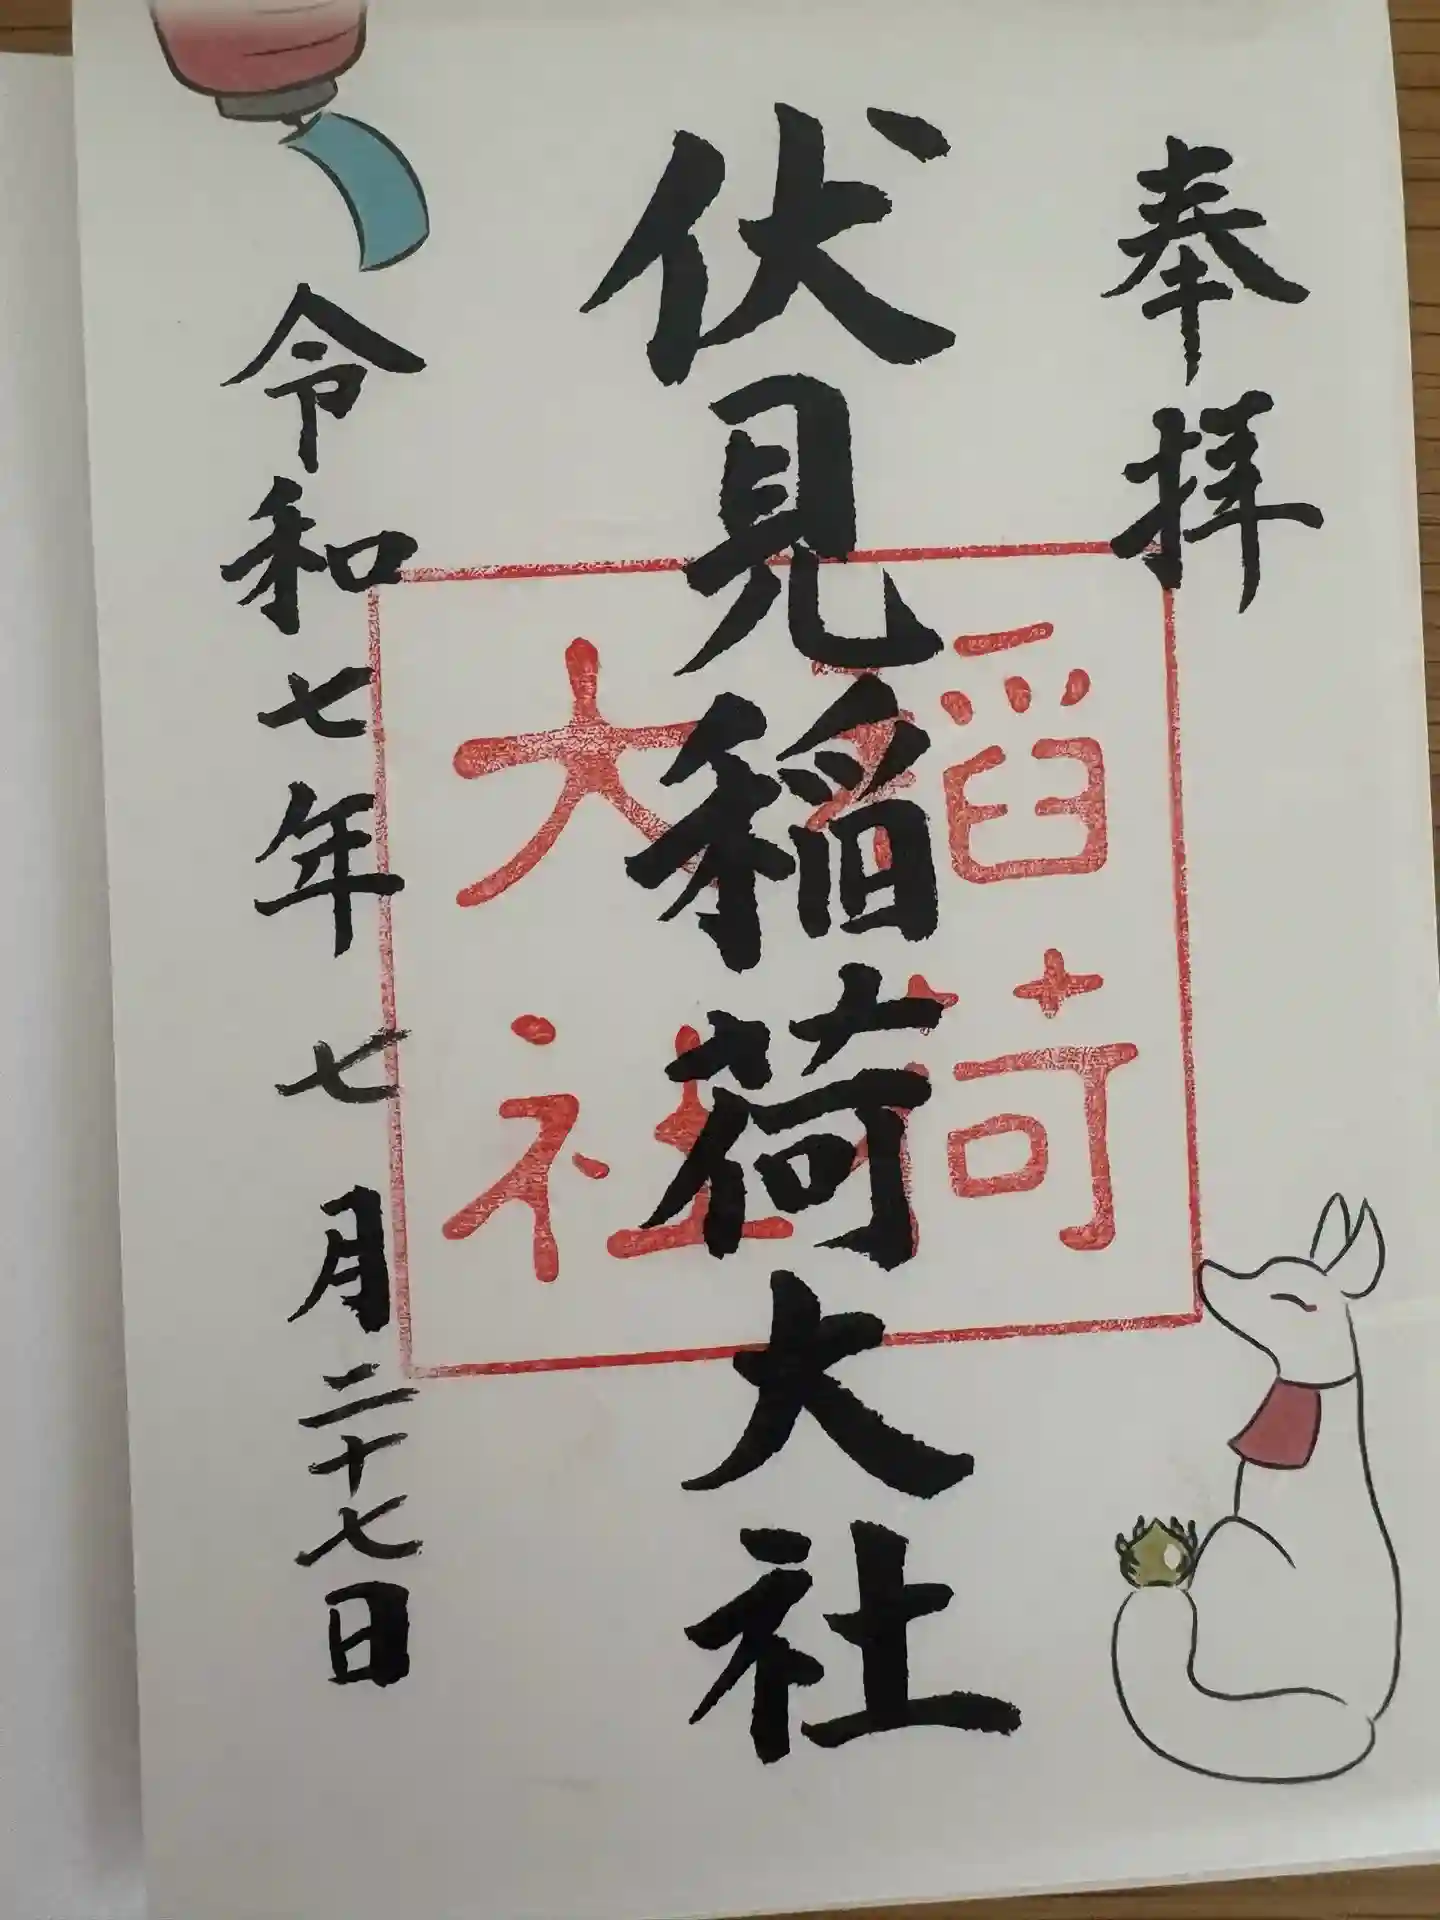 奉拝
伏見稲荷大社
稲荷
大社
令和七年七月二十七日